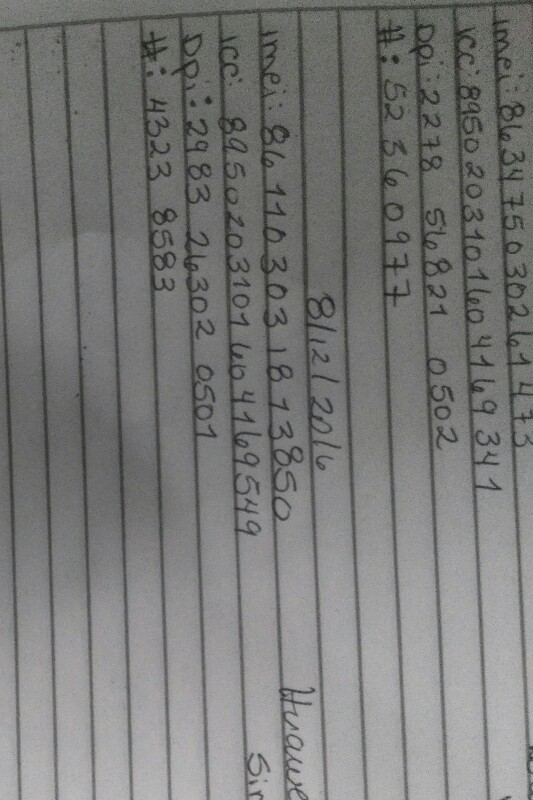 imei: 863475030261473
icc: 8950203101604169341
Dpi: 2278 56821 0502
#: 52360977
8/12/2016
imei: 861103031813850 Huawe
icc: 8950203101604169549
Dpi: 2983 26302 0501
#: 4323 8583